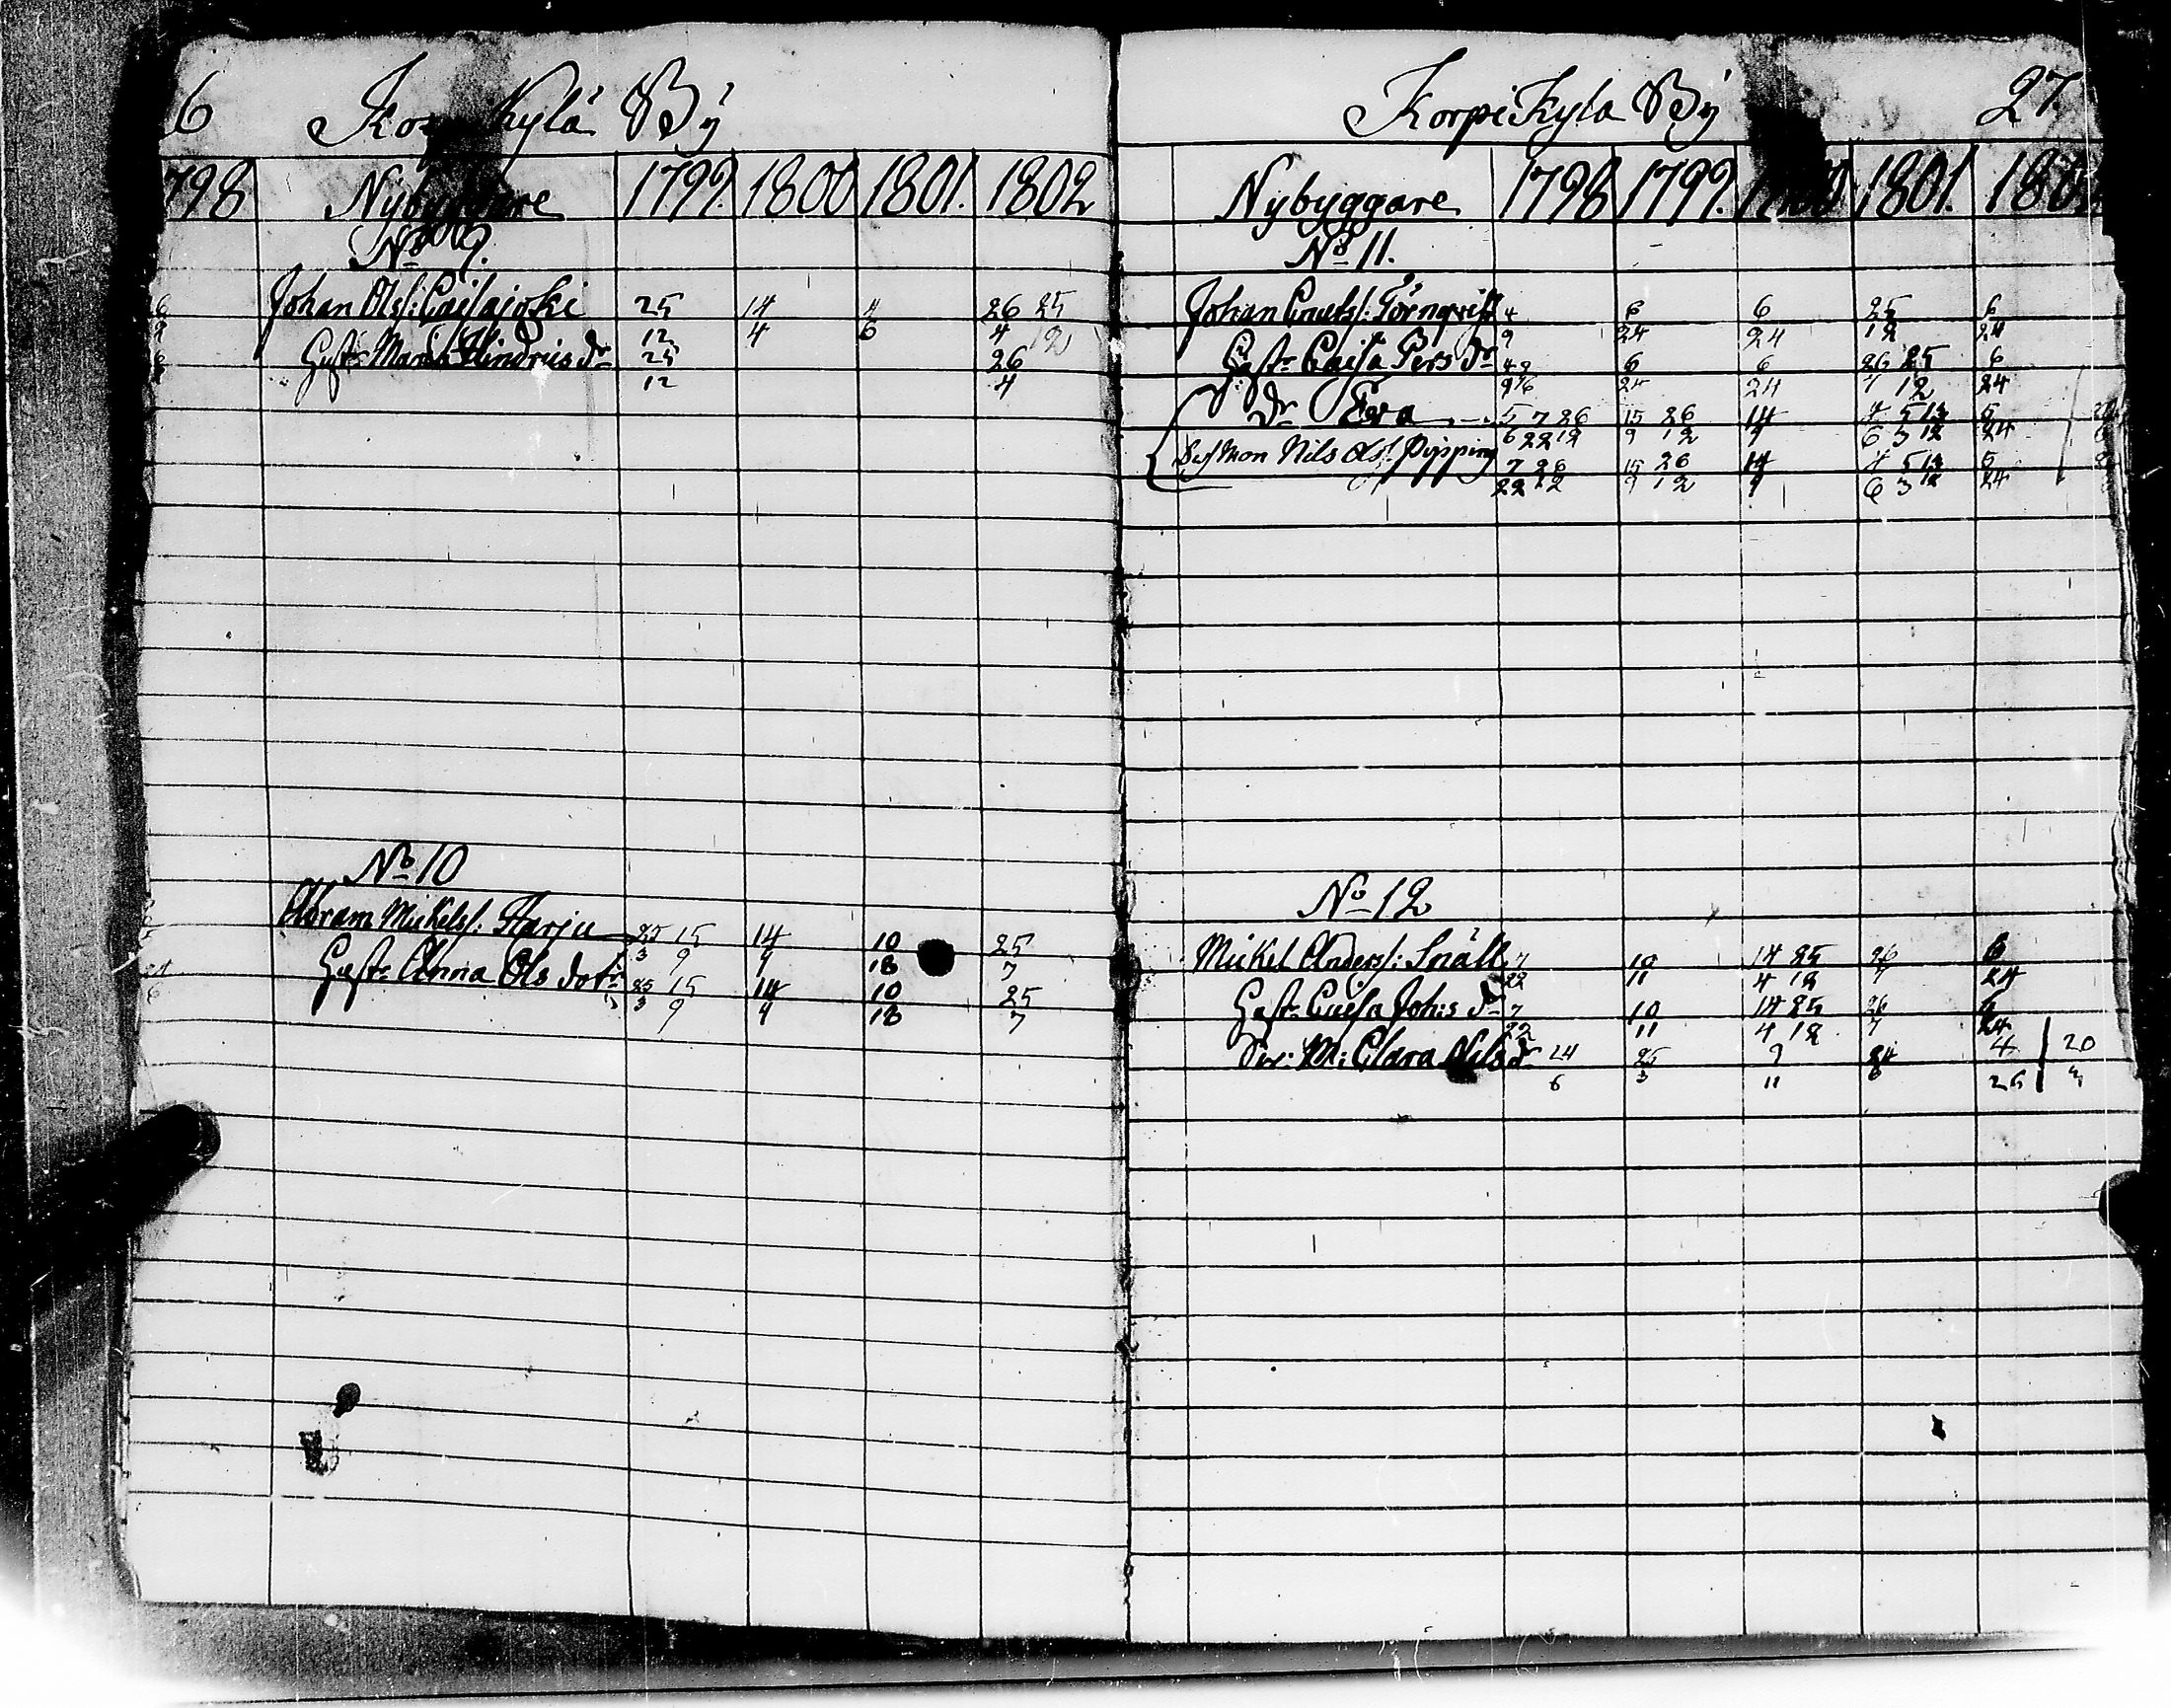 6 Korpi Kylä By
798 Nybyggare 1799. 1800 1801. 1802
No 9.
Johan Olss: Caisajoki 25 14 4 26 25
12 4 6 4 12
Hust: Maria Hindrics dr 25 26
12 4
No 10
Abram Mickelss: Harju 25 15 14 10 25
3 9 4 18 7
Hust: Anna Ols dotr 25 15 14 10 25
3 9 4 18 7
Korpi Kyla By 27.
Nybyggare 1798 1799. 1801.
No 11.
Johan Cnutss: Törnqvist 4 6 6 25 6
9 24 24 12 24
Hust: Caisa Pers dr 6 6 26 25 6
24 24 4 12 24
dr Eva 5 7 26 15 26 14 4 5 14 5
6 22 12 9 12 4 6 3 12 24
Nils Ols: Pipping 7 26 15 26 14 4 5 14 5
22 12 9 12 4 6 3 12 24
No 12
Mickel Anderss: Snäll 7 10 14 25 26 6
22 11 4 12 7 24
Hust: Caisa Joh:s dr 7 10 14 25 26 6
22 11 4 12 7 24
M: Clara Nils dr 14 25 9 24 4 20
6 3 11 6 26